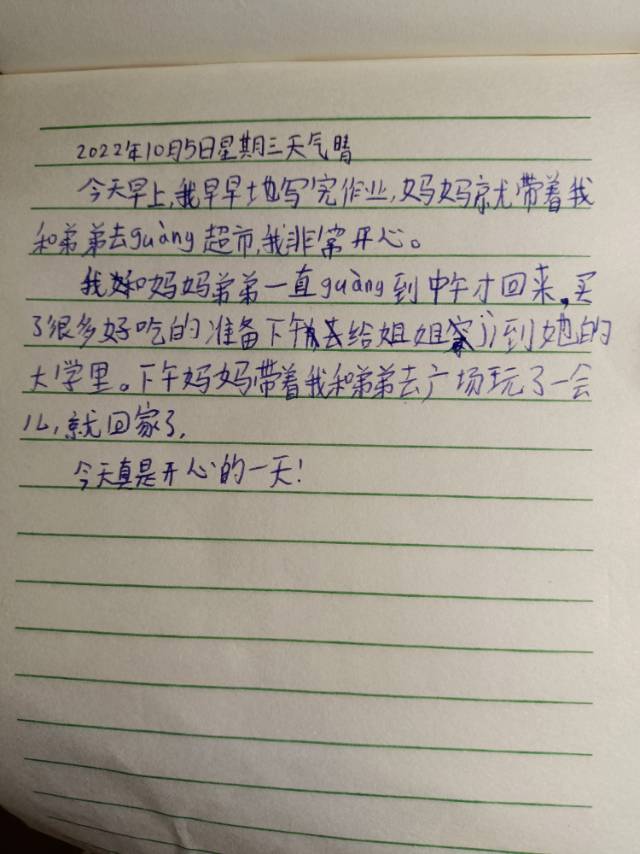 2022年10月5日星期三天气晴
今天早上,我早早地写完作业,妈妈就带着我
和弟弟去guàng超市,我非常开心。
我和妈妈弟弟一直guàng到中午才回来,买
了很多好吃的准备下午去给姐姐 到她的
大学里。下午妈妈带着我和弟弟去广场玩了一会
儿,就回家了,
今天真是开心的一天!